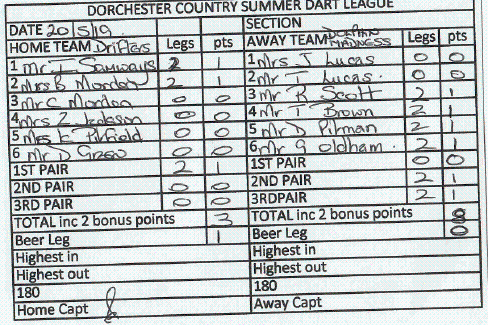 DORCHESTER COUNTRY SUMMER DART LEAGUE
DATE 20/5/19 SECTION
HOME TEAM Drifters Legs pts AWAY TEAM DORPHIN MADNESS Legs pts
1 Mr I Samways 2 1 1 Mrs J Lucas 0 0
2 Mrs B Mordon 2 1 2 Mr T Lucas. 0 0
3 Mr C Mordon 0 0 3 Mr R Scott 2 1
4 Mrs Z Jackson 0 0 4 Mr T Brown 2 1
5 Mrs L 0 0 5 Mr D Pitman 2 1
6 Mr D Green 0 0 6 Mr G Oldham. 2 1
1ST PAIR 2 1 1ST PAIR 0 0
2ND PAIR 0 0 2ND PAIR 2 1
3RD PAIR 0 0 3RDPAIR 2 1
TOTAL inc 2 bonus points 3 TOTAL inc 2 bonus points 8
Beer Leg 1 Beer Leg 0
Highest in Highest in
Highest out Highest out
180 180
Home Capt Away Capt